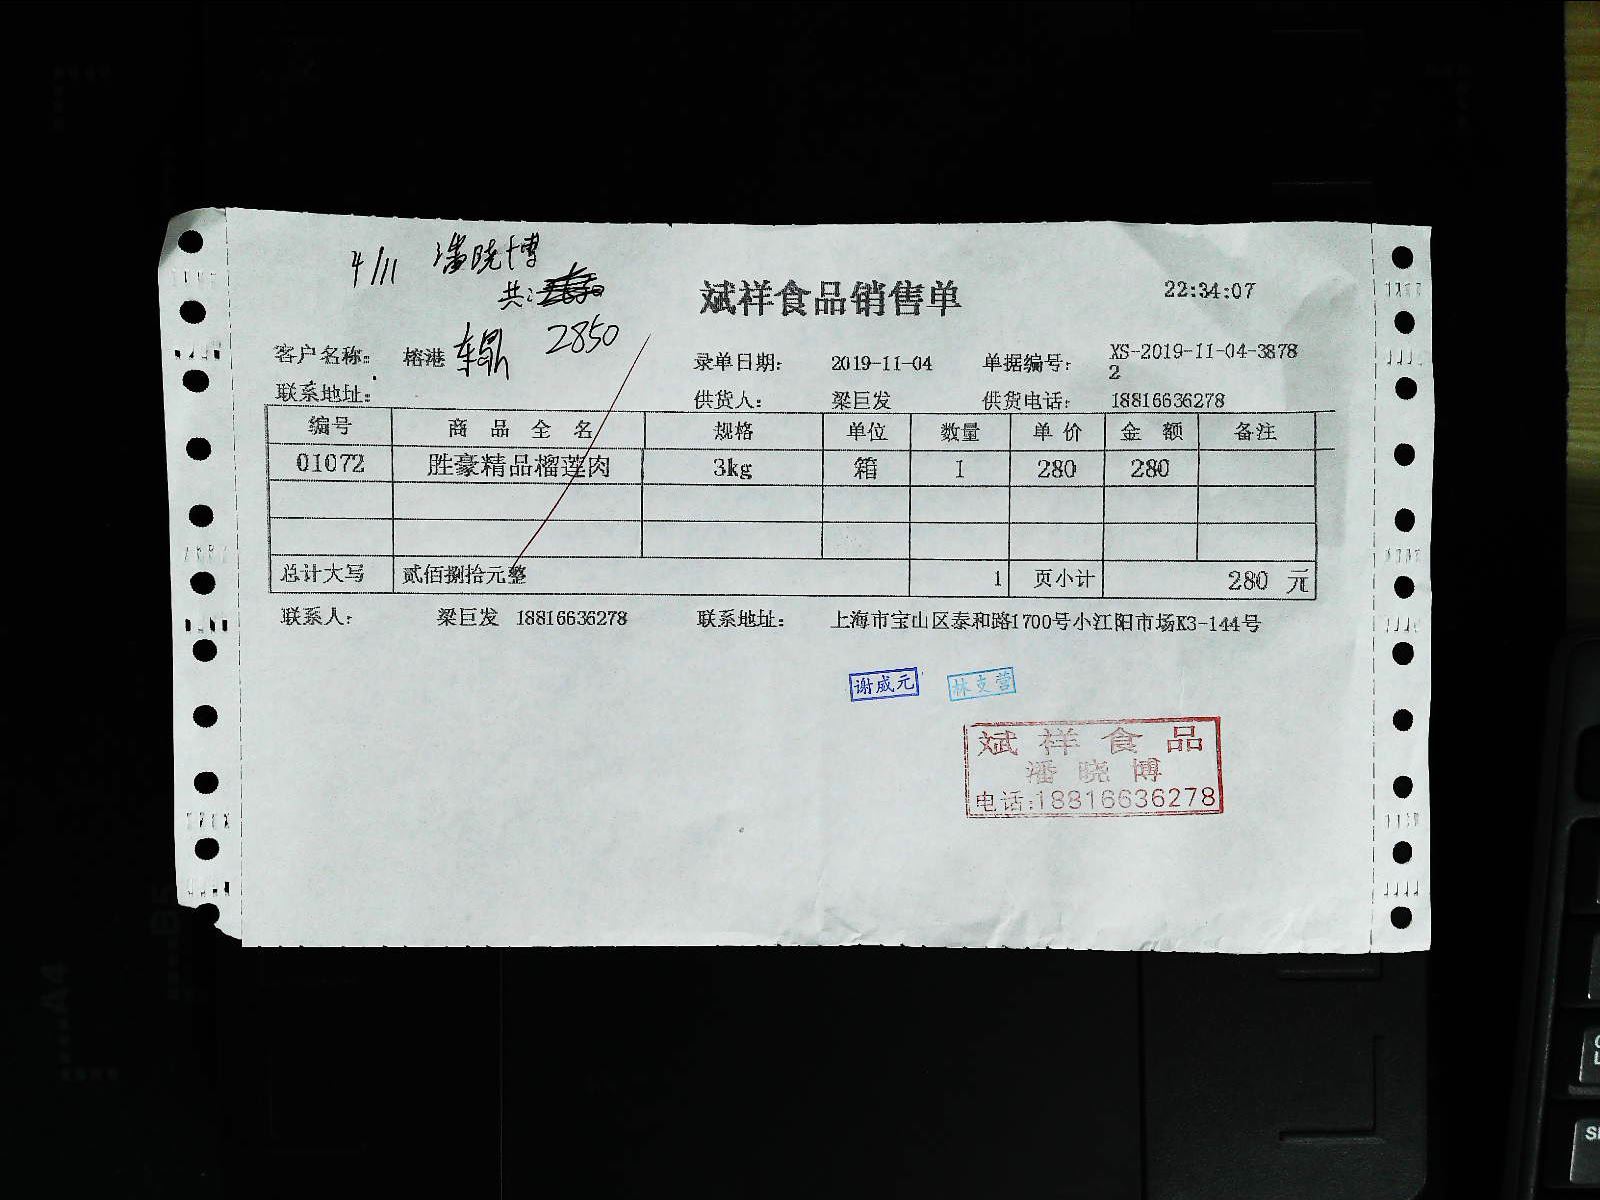 4/11 潘晓博
共:
斌祥食品销售单 22:34:07
2850
客户名称: 榕港 录单日期: 2019-11-04 单据编号: XS-2019-11-04-3878
2
联系地址: 供货人: 梁巨发 供货电话: 18816636278
编号 商品全名 规格 单位 数量 单价 金额 备注
01072 胜豪精品榴莲肉 3kg 箱 1 280 280
总计大写 贰佰捌拾元整 1 页小计 280 元
联系人: 梁巨发 18816636278 联系地址: 上海市宝山区泰和路1700号小江阳市场K3-144号
谢威元 林支营
斌祥食品
潘晓博
电话:18816636278